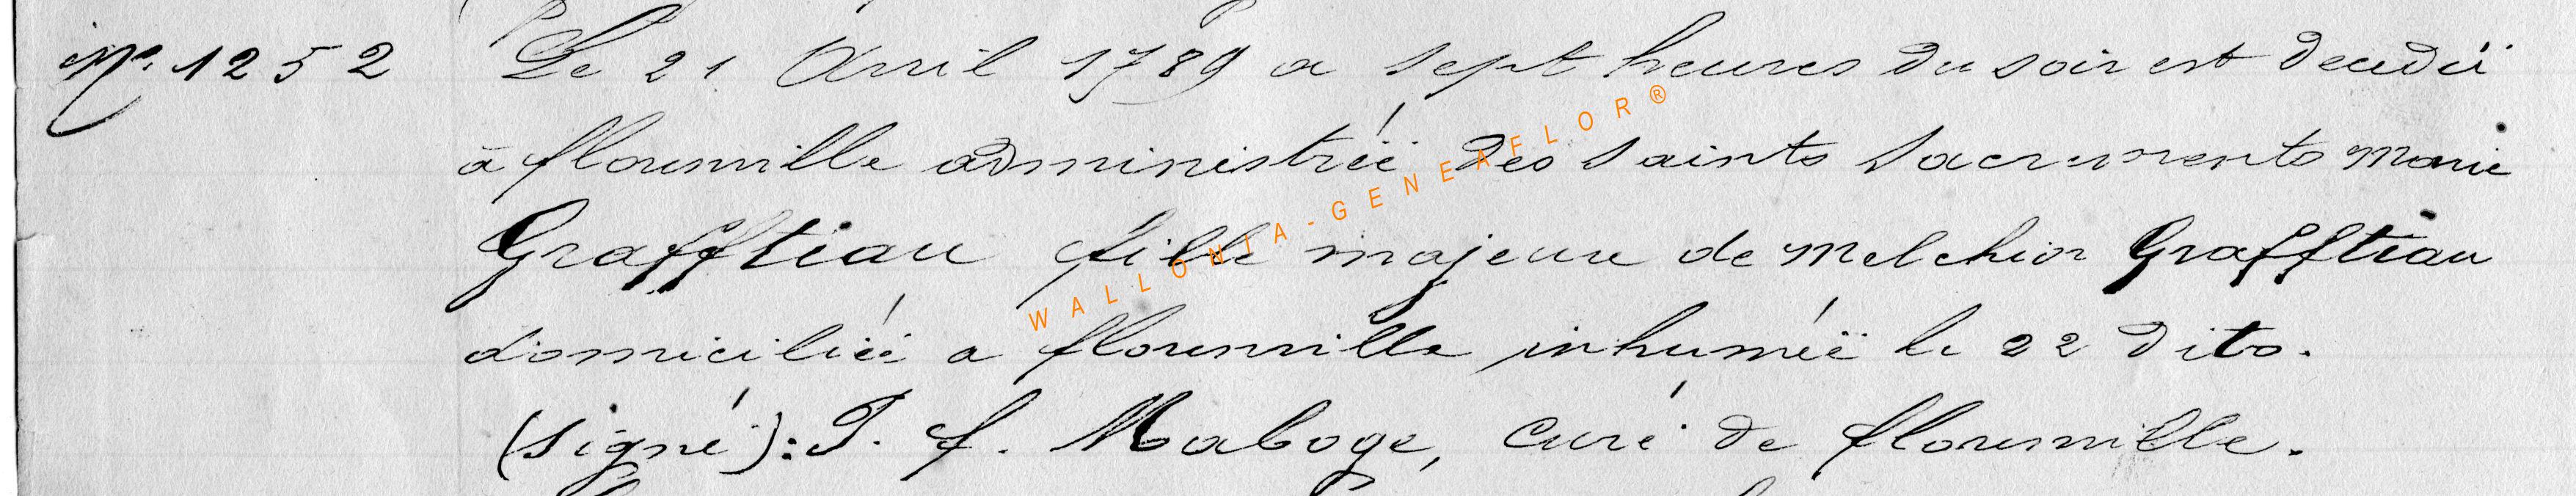 No. 1252 Le 21 Avril 1789 a sept heures du soir est décédéé
à florenville administréé des saints Sacrements Marie
Grafftiau fille majeure de Melchior Grafftiau
domiciliéé a florenville inhuméé le 22 dito.
(signé): J. f. Maboge, Curé de florenville.
WALLONIA-GENEAFLOR®